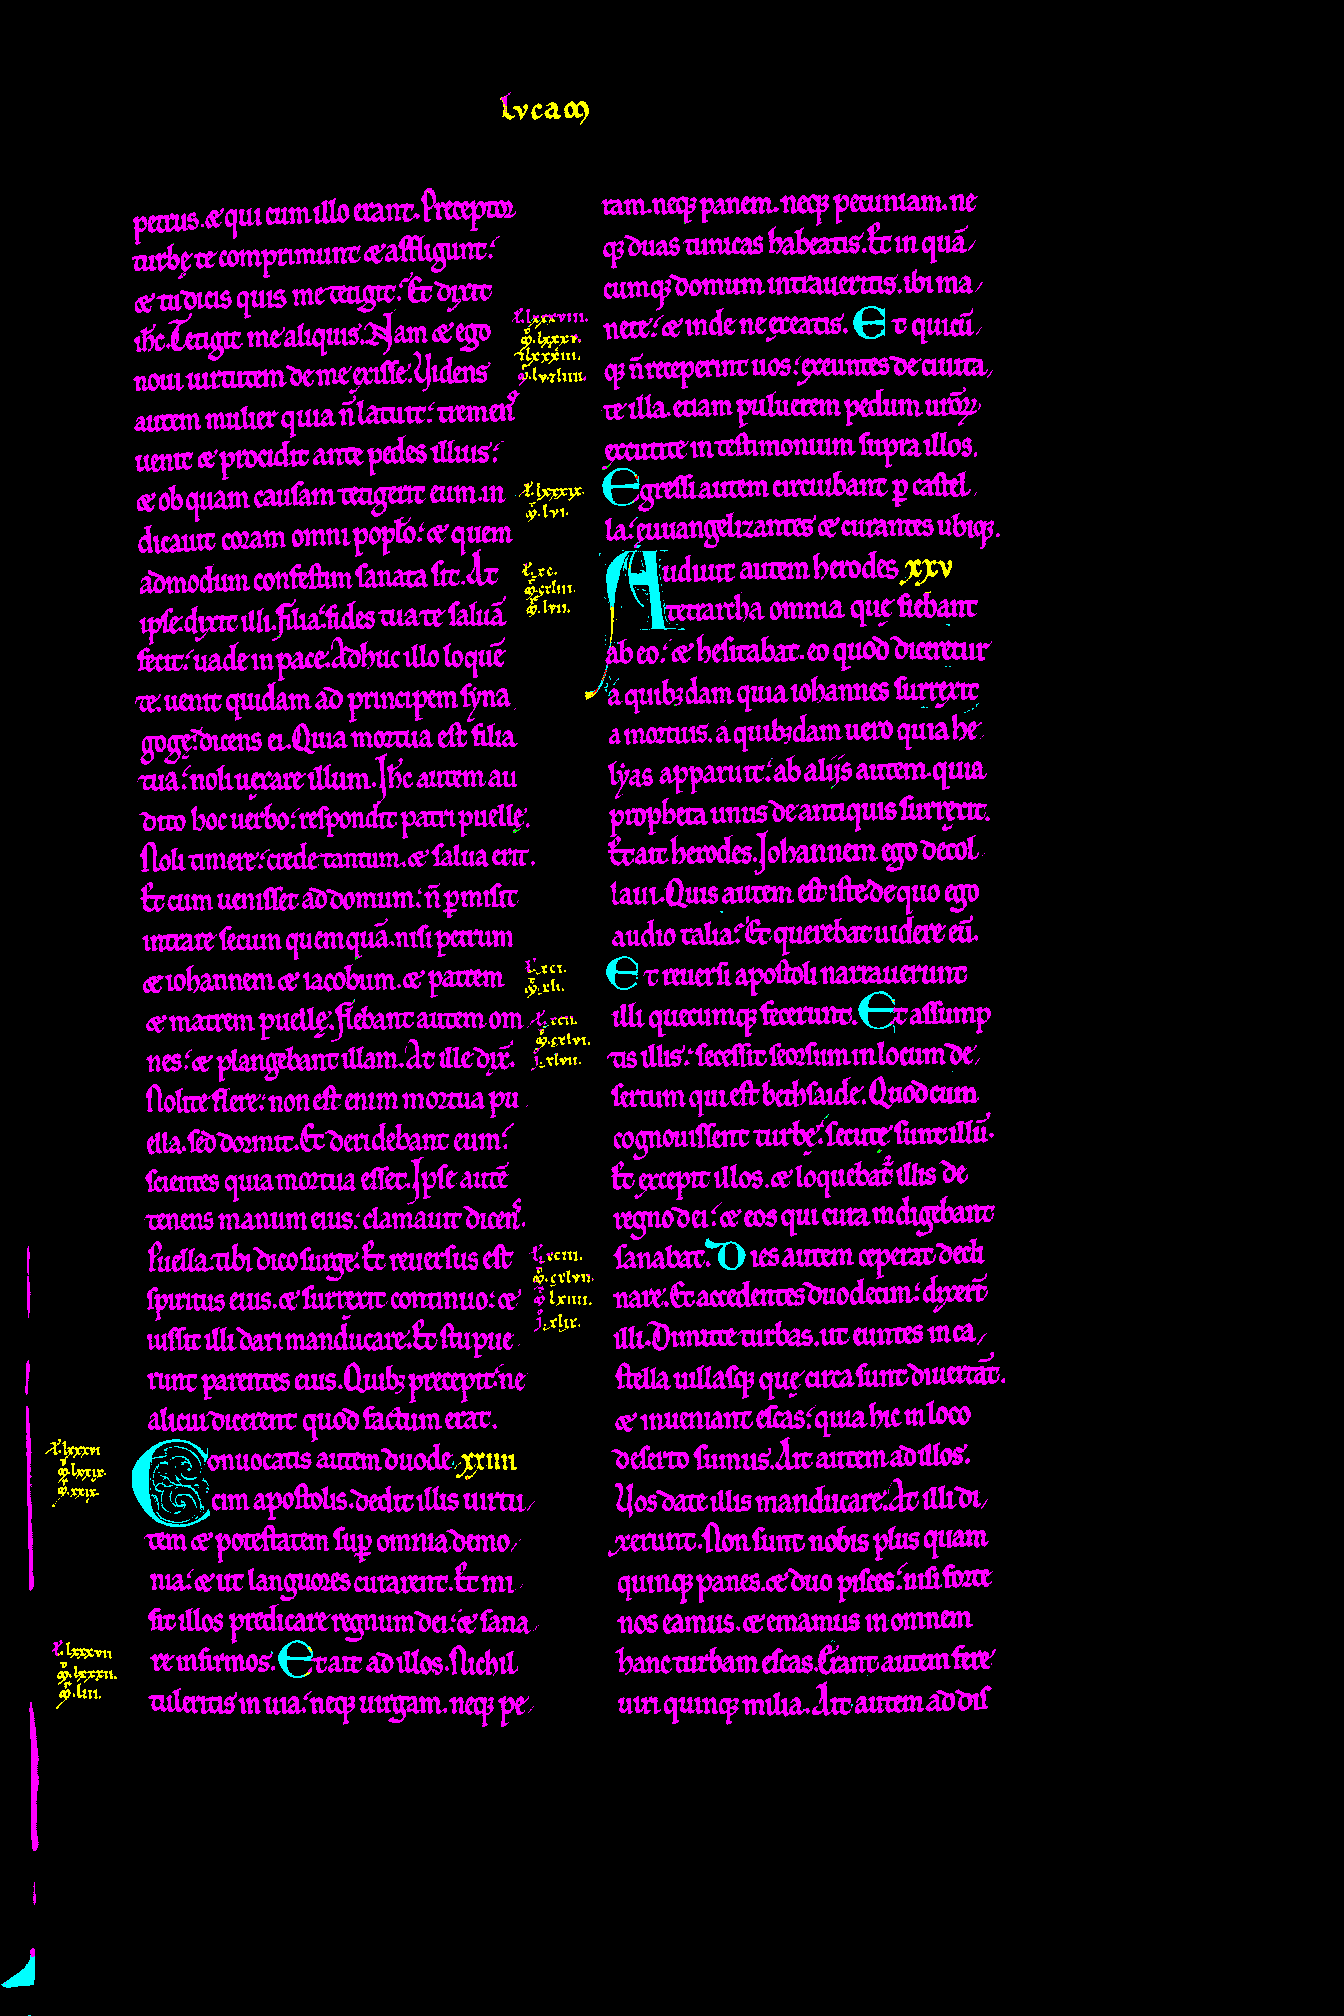 lvcam
petrus. & qui cum illo erant. Preceptor
turbę te comprimunt & affligunt:
& tu dicis quis me tetigit? Et dixit
ihc. Tetigit me aliquis. Nam & ego
noui uirtutem de me exisse. Videns
autem mulier quia n̄ latuit: tremens
uenit & procidit ante pedes illius:
& ob quam causam tetigerit eum. in
dicauit coram omni poplo: & quem
admodum confestim sanata sit. At
ipse dixit illi. Filia: fides tua te saluā
fecit: uade in pace. Adhuc illo loquē
te. uenit quidam ad principem syna
gogę: dicens ei. Quia mortua est filia
tua: noli uexare illum. Ihc autem au
dito hoc uerbo: respondit patri puellę.
Noli timere: crede tantum. & salua erit.
Et cum uenisset ad domum: n̄ pmisit
intrare secum quemquā. nisi petrum
& iohannem & iacobum. & patrem
& matrem puellę. Flebant autem om
nes: & plangebant illam. At ille dix̄.
Nolite flere: non est enim mortua pu
ella. sed dormit. Et deridebant eum:
scientes quia mortua esset. Ipse autē
tenens manum eius: clamauit dicens.
Puella: tibi dico surge. Et reuersus est
spiritus eius. & surrexit continuo: &
iussit illi dari manducare. Et stupue
runt parentes eius. Quibꝫ precepit: ne
alicui dicerent quod factum erat.
Conuocatis autem duode xxiiii
cim apostolis. dedit illis uirtu
tem & potestatem sup omnia demo
nia: & ut languores curarent. Et mi
sit illos predicare regnum dei: & sana
re infirmos. Et ait ad illos. Nichil
tuleritis in uia: neqꝫ uirgam. neqꝫ pe
ram. neqꝫ panem. neqꝫ pecuniam. ne
qꝫ duas tunicas habeatis. Et in quā
cumqꝫ domum intraueritis. ibi ma
nete: & inde ne exeatis. Et quicū
qꝫ n̄ receperint uos: exeuntes de ciuita
te illa. etiam puluerem pedum urōꝝ
excutite in testimonium supra illos.
Egressi autem circuibant p castel
la: euuangelizantes & curantes ubiqꝫ.
Audiuit autem herodes xxv
tetrarcha omnia quę fiebant
ab eo: & hesitabat. eo quod diceretur
a quibꝫdam quia iohannes surrexit
a mortuis. a quibꝫdam uero quia he
lyas apparuit: ab alijs autem. quia
propheta unus de antiquis surrexit.
Et ait herodes. Iohannem ego decol
laui. Quis autem est iste de quo ego
audio talia? Et querebat uidere eū.
Et reuersi apostoli narrauerunt
illi quecumqꝫ fecerunt. Et assump
tis illis: secessit seorsum in locum de
sertum qui est bethsaide. Quod cum
cognouissent turbę: secutę sunt illū.
Et excepit illos. & loquebat̄ illis de
regno dei: & eos qui cura indigebant
sanabat. Dies autem ceperat decli
nare. Et accedentes duodecim: dixer̄t
illi. Dimitte turbas. ut euntes in ca
stella uillasqꝫ quę circa sunt diuertāt.
& inueniant escas: quia hic in loco
deserto sumus. Ait autem ad illos.
Vos date illis manducare. At illi di
xerunt. Non sunt nobis plus quam
quinqꝫ panes. & duo pisces: nisi forte
nos eamus. & emamus in omnem
hanc turbam escas. Erant autem fere
uiri quinqꝫ milia. Ait autem ad dis